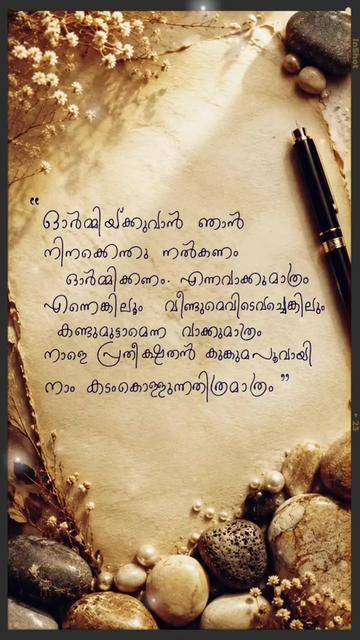 " ഓർമ്മിയ്ക്കുവാൻ ഞാൻ
നിനക്കെന്തു നൽകണം
ഓർമ്മിക്കണം. എന്നവാക്കുമാത്രം
എന്നെങ്കിലും വീണ്ടുമെവിടെവച്ചെങ്കിലും
കണ്ടുമുട്ടാമെന്ന വാക്കുമാത്രം
നാളെ പ്രതീക്ഷതൻ കുങ്കുമപൂവായി
നാം കടംകൊള്ളുന്നതിത്രമാത്രം "
InShot